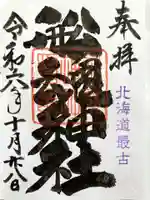 奉拝
北海道最古
船魂神社
令和六年十月廿八日